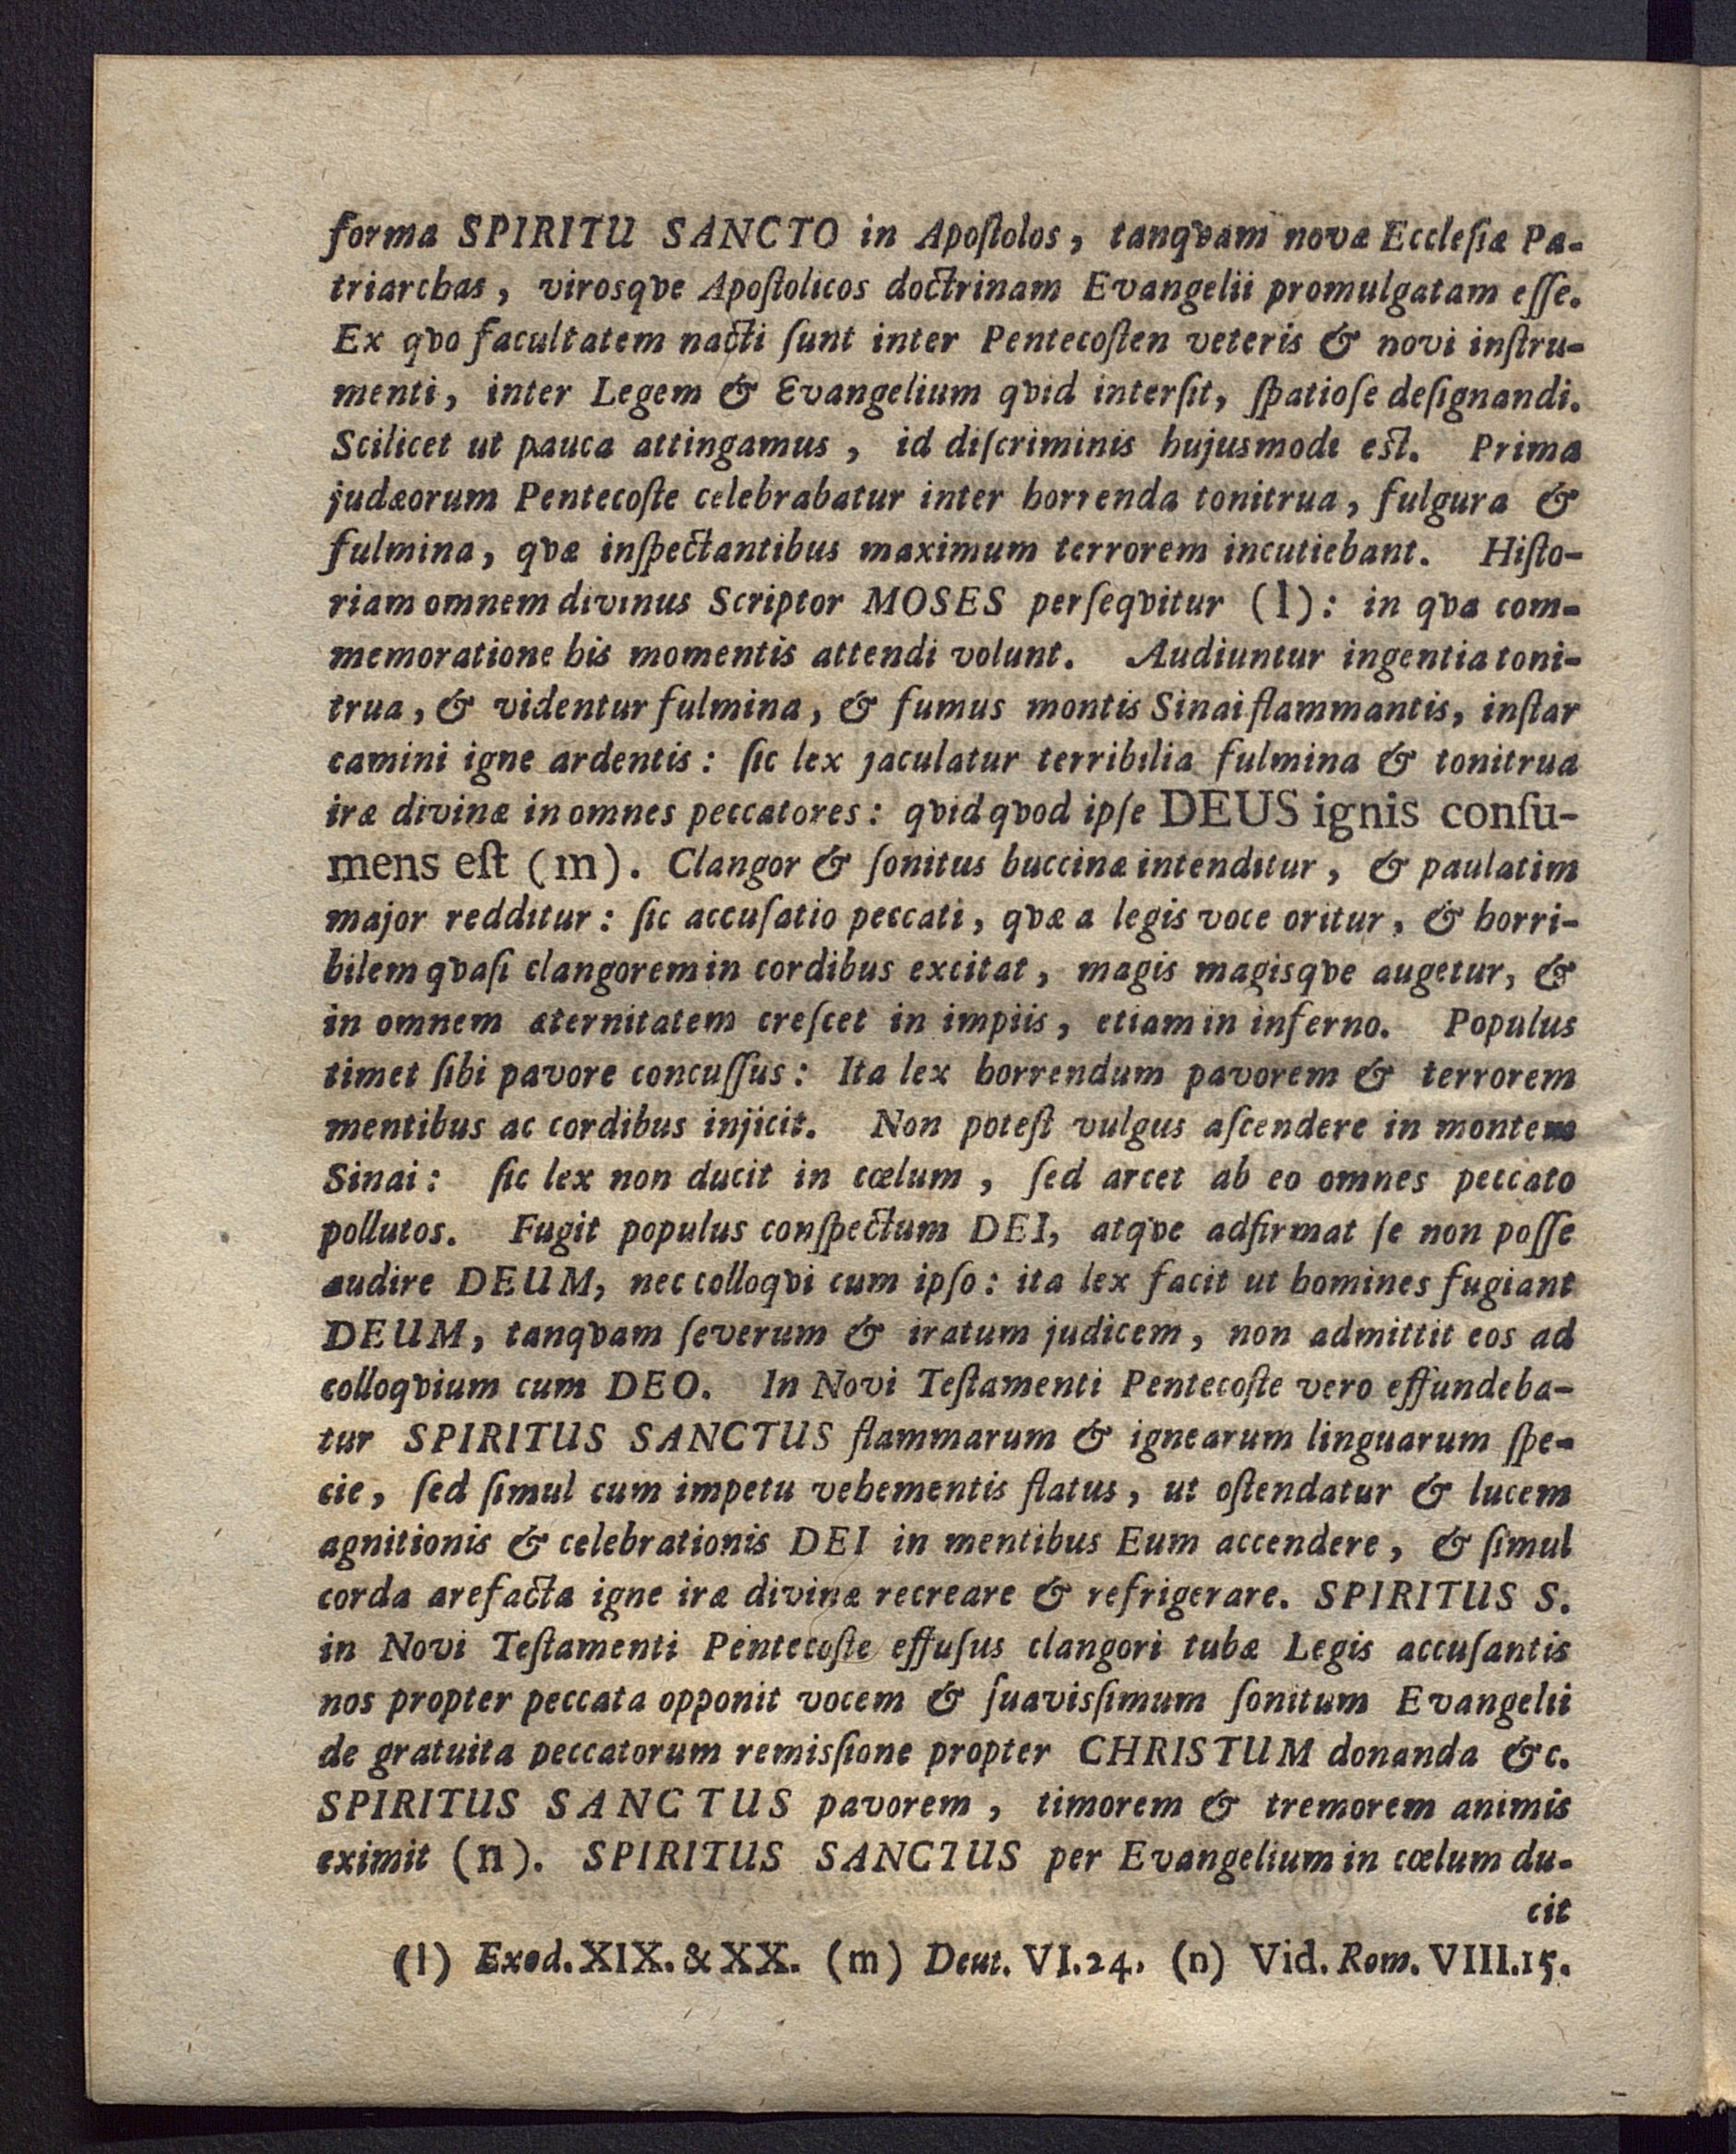 forma SPIRITU SANCTO in Apoſtolos, tanqvam novæ Eccleſiæ Pa-
triarchas, virosqve Apoſtolicos doctrinam Evangelii promulgatam eſſe.
Ex qvo facultatem nacti ſunt inter Pentecoſten veteris & novi inſtru-
menti, inter Legem & Evangelium qvid interſit, ſpatioſe deſignandi.
Scilicet ut pauca attingamus, id diſcriminis hujusmodi est. Prima
judæorum Pentecoſte celebrabatur inter horrenda tonitrua, fulgura &
fulmina, qvæ inſpectantibus maximum terrorem incutiebant. Hiſto-
riam omnem divinus Scriptor MOSES perſeqvitur (l): in qva com-
memoratione his momentis attendi volunt. Audiuntur ingentia toni-
trua, & videntur fulmina, & fumus montis Sinai flammantis, inſtar
camini igne ardentis: ſic lex jaculatur terribilia fulmina & tonitrua
iræ divinæ in omnes peccatores: qvid qvod ipſe DEUS ignis conſu-
mens eſt (m). Clangor & ſonitus buccinæ intenditur, & paulatim
major redditur: ſic accuſatio peccati, qvæ a legis voce oritur, & horri-
bilem qvaſi clangorem in cordibus excitat, magis magisqve augetur, &
in omnem æternitatem creſcet in impiis, etiam in inferno. Populus
timet ſibi pavore concuſſus: Ita lex horrendum pavorem & terrorem
mentibus ac cordibus injicit. Non poteſt vulgus aſcendere in montem
Sinai: ſic lex non ducit in cœlum, ſed arcet ab eo omnes peccato
pollutos. Fugit populus conſpectum DEI, atqve adfirmat ſe non poſſe
audire DEUM, nec colloqvi cum ipſo: ita lex facit ut homines fugiant
DEUM, tanqvam ſeverum & iratum judicem, non admittit eos ad
colloqvium cum DEO. In Novi Teſtamenti Pentecoſte vero effundeba-
tur SPIRITUS SANCTUS flammarum & ignearum linguarum ſpe-
cie, ſed ſimul cum impetu vehementis flatus, ut oſtendatur & lucem
agnitionis & celebrationis DEI in mentibus Eum accendere, & ſimul
corda arefacta igne iræ divinæ recreare & refrigerare. SPIRITUS S.
in Novi Teſtamenti Pentecoſte effuſus clangori tubæ Legis accuſantis
nos propter peccata opponit vocem & ſuavisſimum ſonitum Evangelii
de gratuita peccatorum remisſione propter CHRISTUM donanda &c.
SPIRITUS SANCTUS pavorem, timorem & tremorem animis
eximit (n). SPIRITUS SANCTUS per Evangelium in cœlum du-
cit
(l) Exod. XIX. & XX. (m) Deut. VI. 24. (n) Vid. Rom. VIII. 15.